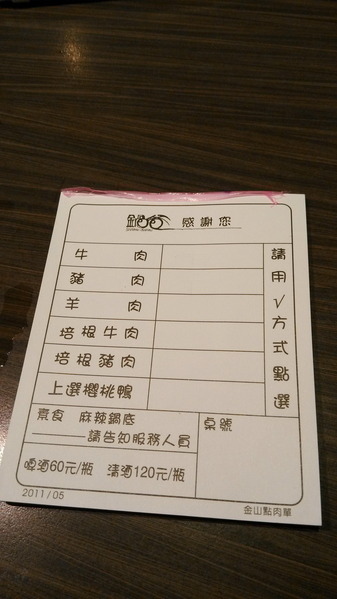 鍋
感謝您
牛肉
豬肉
羊肉
培根牛肉
培根豬肉
上選櫻桃鴨
請用√方式點選
素食 麻辣鍋底
請告知服務人員
啤酒60元/瓶 清酒120元/瓶
桌號
2011/05
金山點肉單